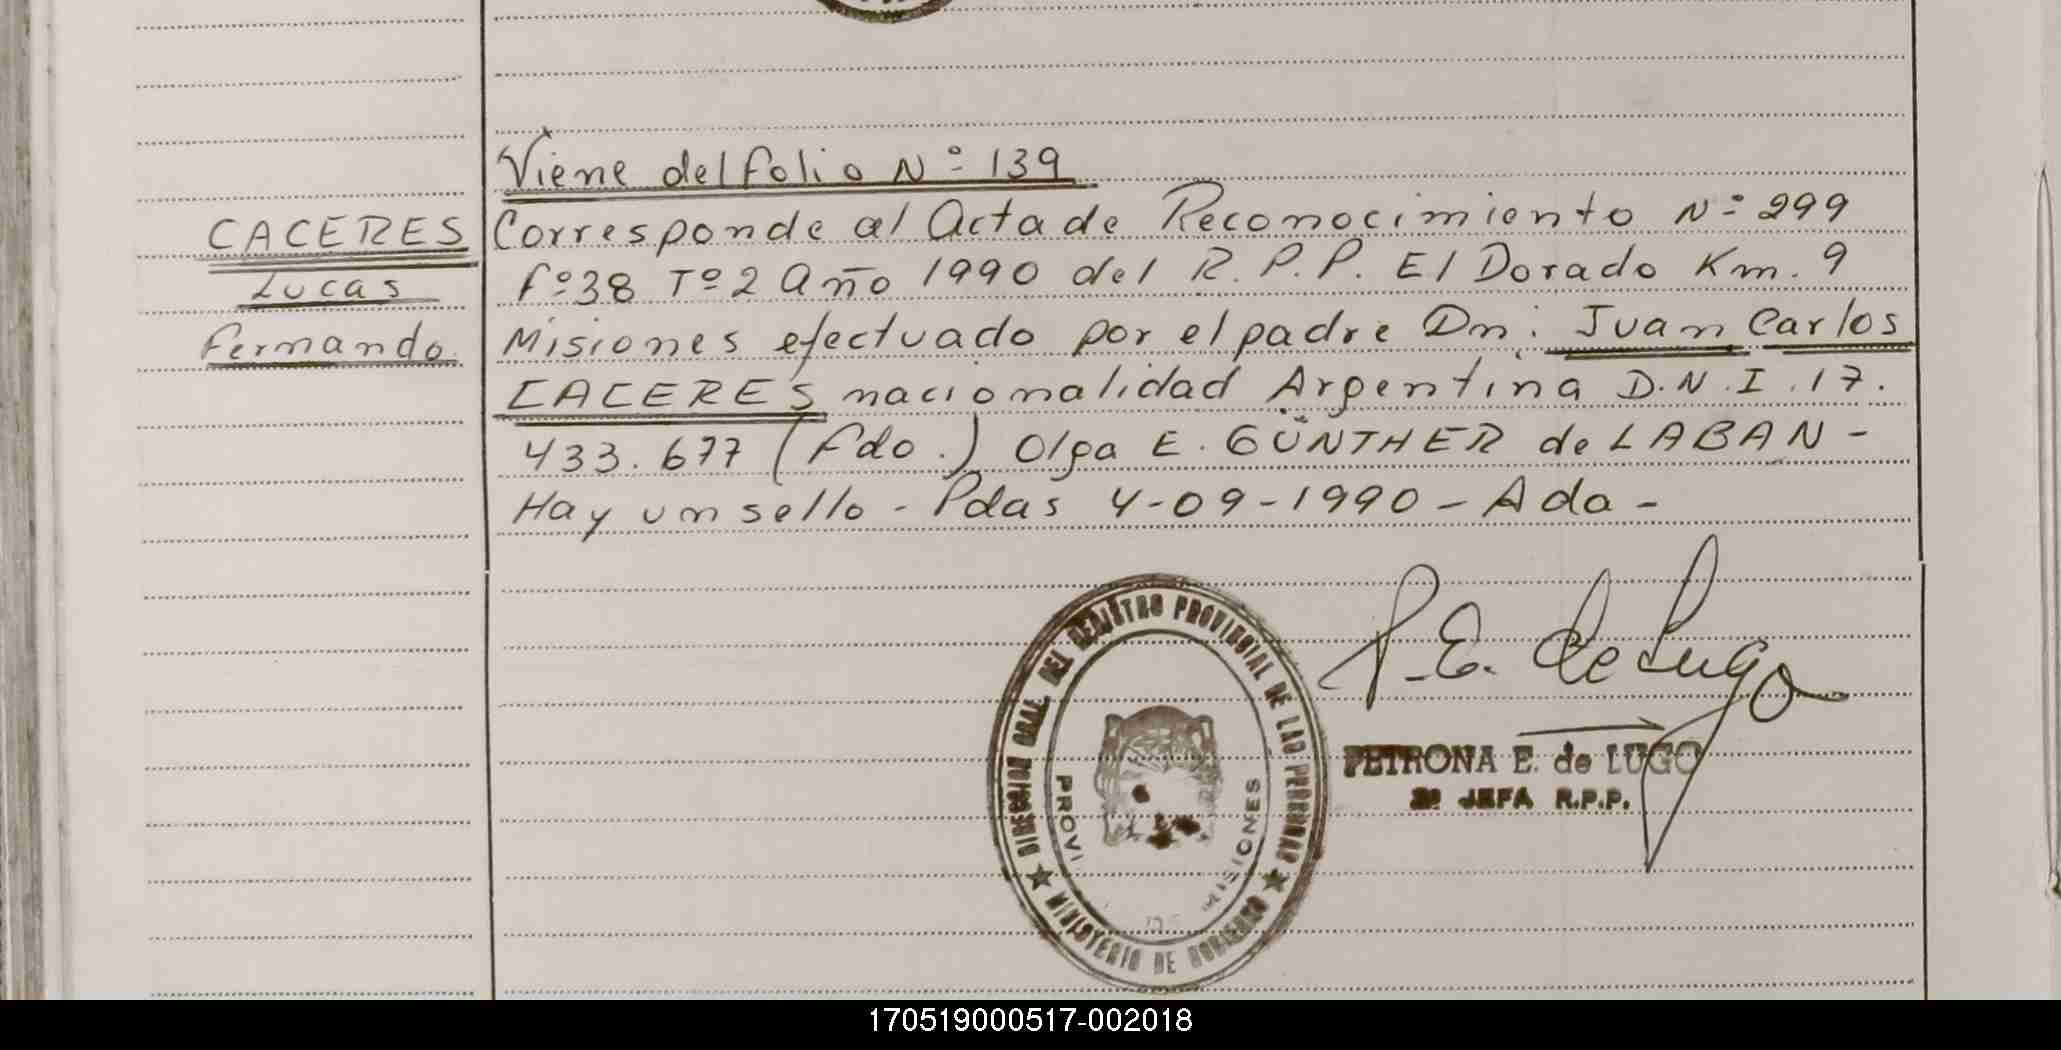 Viene del folio Nº 139
CACERES
Lucas
Fernando
Corresponde al Acta de Reconocimiento Nº 299
fº 38 Tº 2 Año 1990 del R.P.P. El Dorado Km. 9
Misiones efectuado por el padre Dn: Juan Carlos
CACERES nacionalidad Argentina D.N.I. 17.
433.677 (Fdo.) Olga E. GÜNTHER de LABAN -
Hay un sello - Pdas 4-09-1990 - Ada -
P.E. de Lugo
PETRONA E. de LUGO
2º JEFA R.P.P.
DIRECCION GRAL. DEL REGISTRO PROVINCIAL DE LAS PERSONAS
PROVI MISIONES
MINISTERIO DE GOBIERNO
170519000517-002018